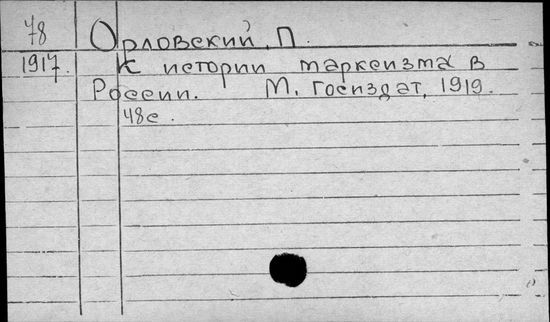 78
Орловский, П.
1917.
К истории марксизма в
России. М. Госиздат, 1919.
48с.